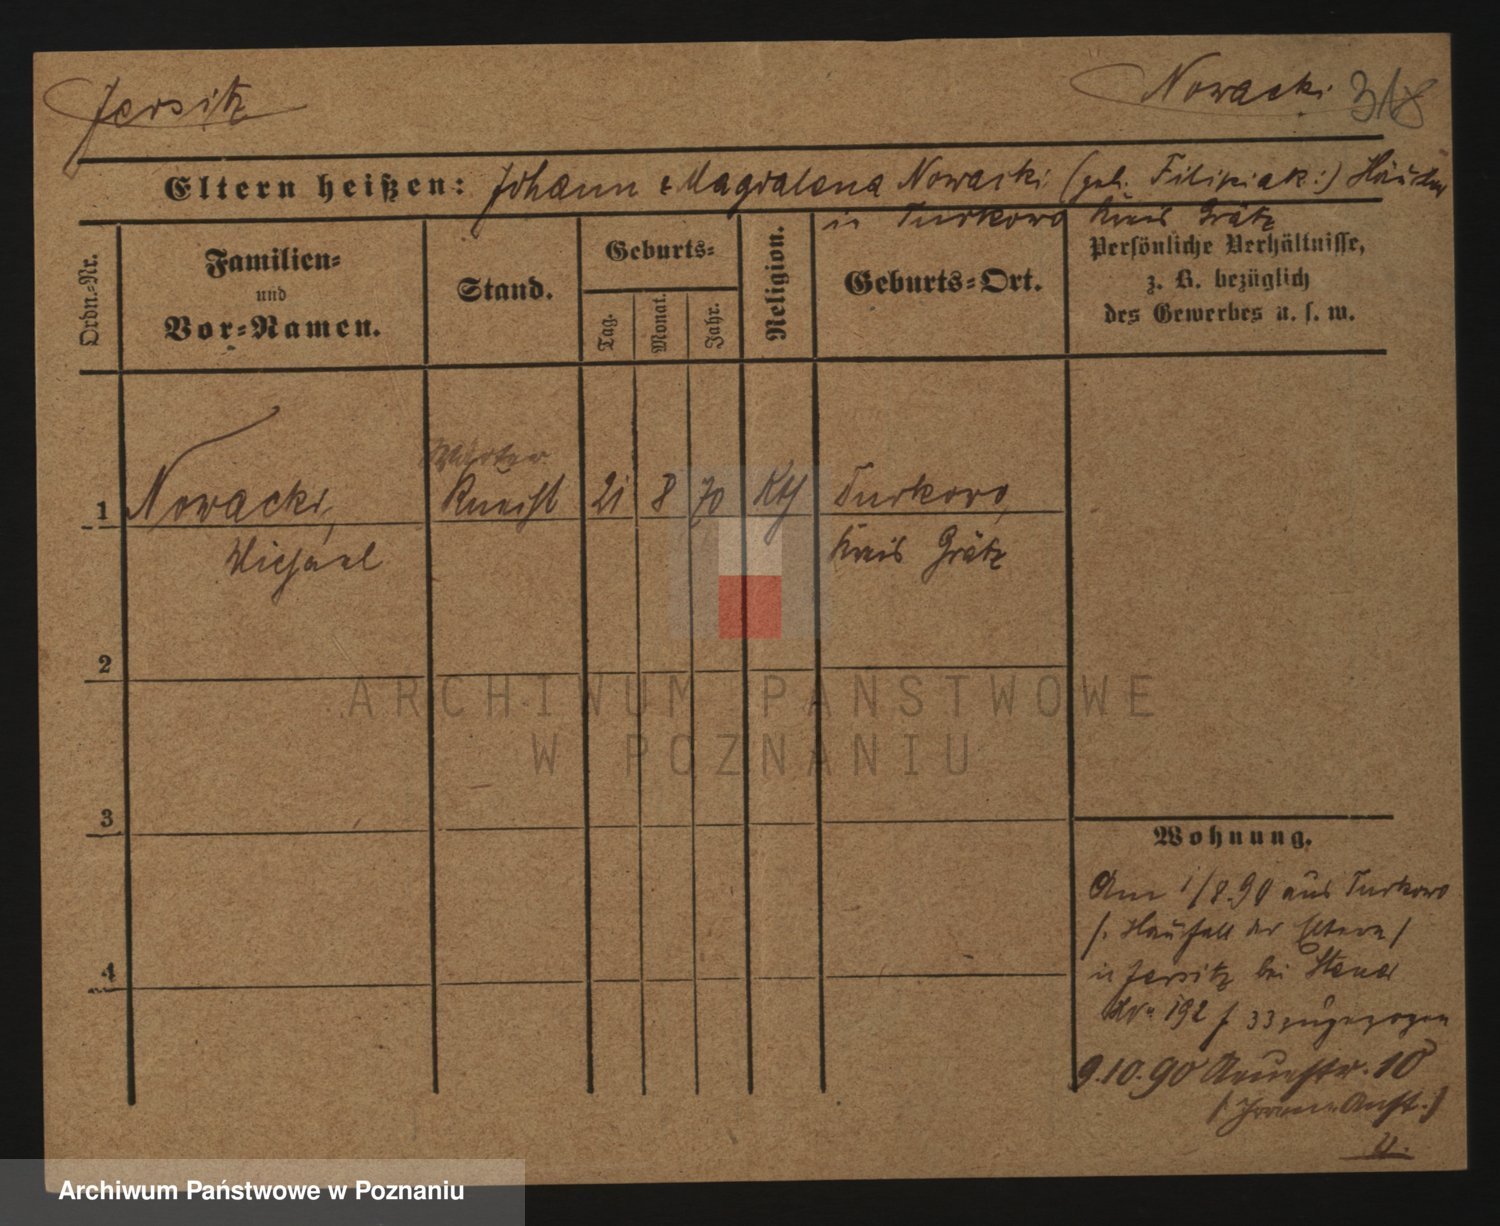 Jersitz
Nowacki 318
Eltern heißen: Johann & Magdalena Nowacki (geb. Filipiak:) Häusler
in Turkowo Kreis Grätz
Ordn.-Nr.
Familien-
und
Vor-Namen.
Stand.
Geburts-
Tag.
Monat.
Jahr.
Religion.
Geburts-Ort.
Persönliche Verhältnisse,
z. B. bezüglich
des Gewerbes u. s. w.
Wärter
1 Nowacki, Knecht 21 8 70 Kth Turkowo,
Michael Kreis Grätz
2
3
4
Wohnung.
Am 1/8.90 aus Turkowo
/: Haushalt der Eltern /
in Jersitz bei
No 192 / 33 zugezogen
9.10.90 10
(Irren-Anst.)
ARCHIWUM PAŃSTWOWE
W POZNANIU
Archiwum Państwowe w Poznaniu